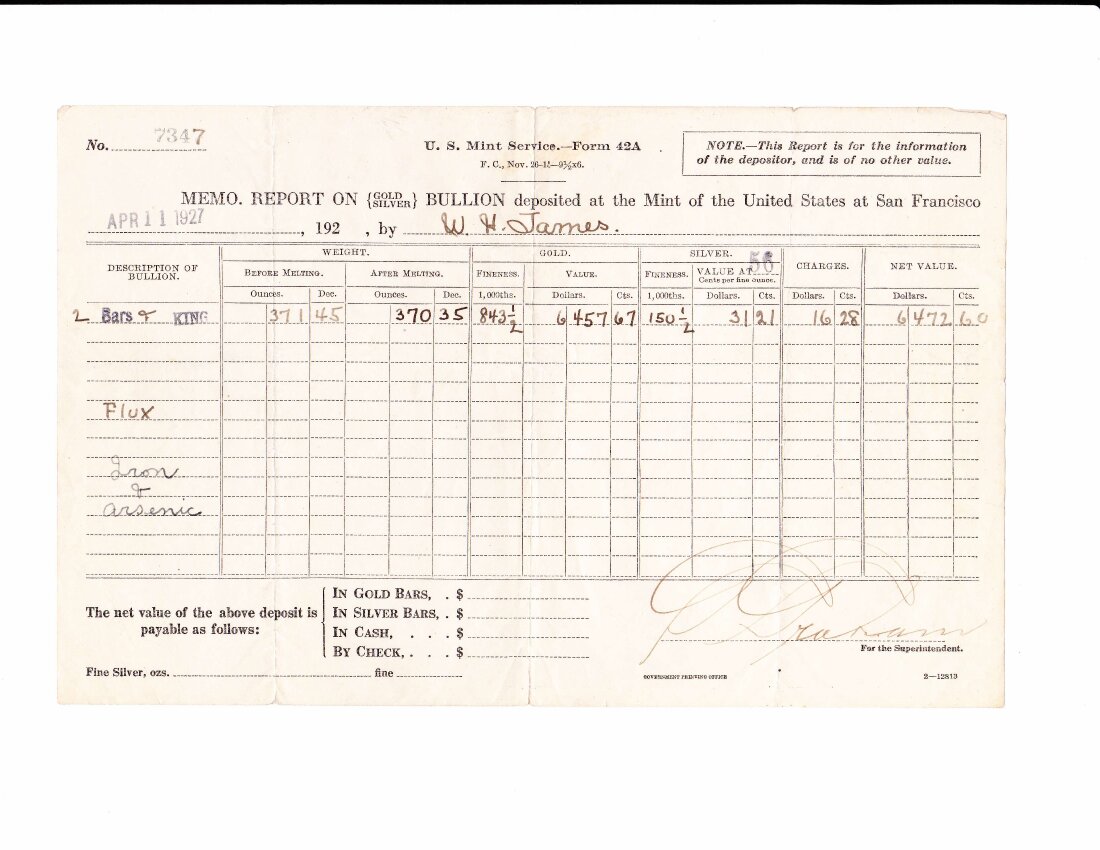 No. 7347
U. S. Mint Service.—Form 42A
NOTE.—This Report is for the information
of the depositor, and is of no other value.
MEMO. REPORT ON {GOLD SILVER} BULLION deposited at the Mint of the United States at San Francisco
APR 11 1927, 192 , by W. H. James.
DESCRIPTION OF BULLION. WEIGHT. GOLD. SILVER. CHARGES. NET VALUE.
BEFORE MELTING. AFTER MELTING. FINENESS. VALUE. FINENESS. VALUE AT 56 Cents per fine ounce.
Ounces. Dec. Ounces. Dec. 1,000ths. Dollars. Cts. 1,000ths. Dollars. Cts. Dollars. Cts. Dollars. Cts.
2 Bars & KING 371 45 370 35 843 1/2 6 457 67 150 1/2 31 21 16 28 6 472 60
Flux
Iron
&
arsenic
The net value of the above deposit is payable as follows:
IN GOLD BARS, . $
IN SILVER BARS, . $
IN CASH, . . . $
BY CHECK, . . . $
Graham
For the Superintendent.
Fine Silver, ozs. fine
GOVERNMENT PRINTING OFFICE
2—12813